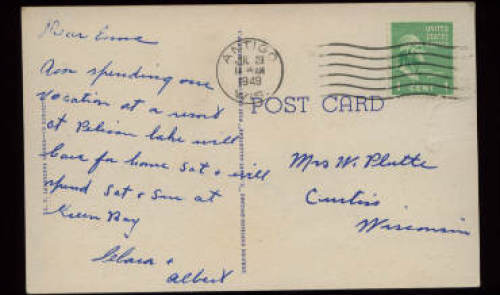 Dear Emma
Am spending our
vacation at a resort
at Pelican lake will
leave for home Sat & will
spend Sat & Sun at
Green Bay
Clara &
Albert
ANTIGO
JUL
1949
WIS.
UNITED
STATES
1 CENT
POST CARD
Mrs W. Plutte
Curtiss
Wisconsin